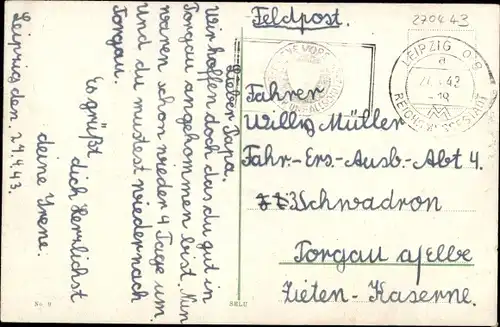 Feldpost.
270443
LEIPZIG C 2
a
43
-18
REICHSMESSESTADT
Fahrer
Willy Müller
Fahr-Ers.-Ausb.-Abt 4.
3 Schwadron
Torgau a/Elbe
Zieten-Kaserne.
Leipzig den. 27.4.43.
Lieber Papa.
Wir hoffen doch das du gut in
Torgau angekommen bist. Nun
waren schon wieder 4 Tage um
und du mustest wieder nach
Torgau.
Es grüßt
dich Herzlichst
deine Irene.
No. 9